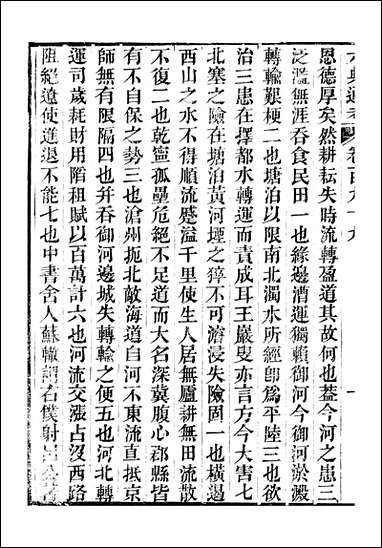 六典通考 卷百九十九 一
恩德厚矣然耕耘失時流轉盈道其故何也蓋今河之患三
泛濫無涯吞食民田一也緣邊漕運獨賴御河今御河淤澱
轉輸艱梗二也塘泊以限南北濁水所經卽爲平陸三也欲
治三患在擇都水轉運而責成耳王巖叟亦言方今大害七
北塞之險在塘泊黃河堙之猝不可濬浸失險固一也橫遏
西山之水不得順流蹙溢千里使生人居無廬耕無田流散
不復二也乾寧孤壘危絕不足道而大名深冀腹心郡縣皆
有不自保之勢三也滄州扼北敵海道自河不東流直抵京
師無有限隔四也并吞御河邊城失轉輸之便五也河北轉
運司歲耗財用陷租賦以百萬計六也河流交漲占沒西路
阻絕遼使進退不能七也中書舍人蘇轍謂右僕射呂公著